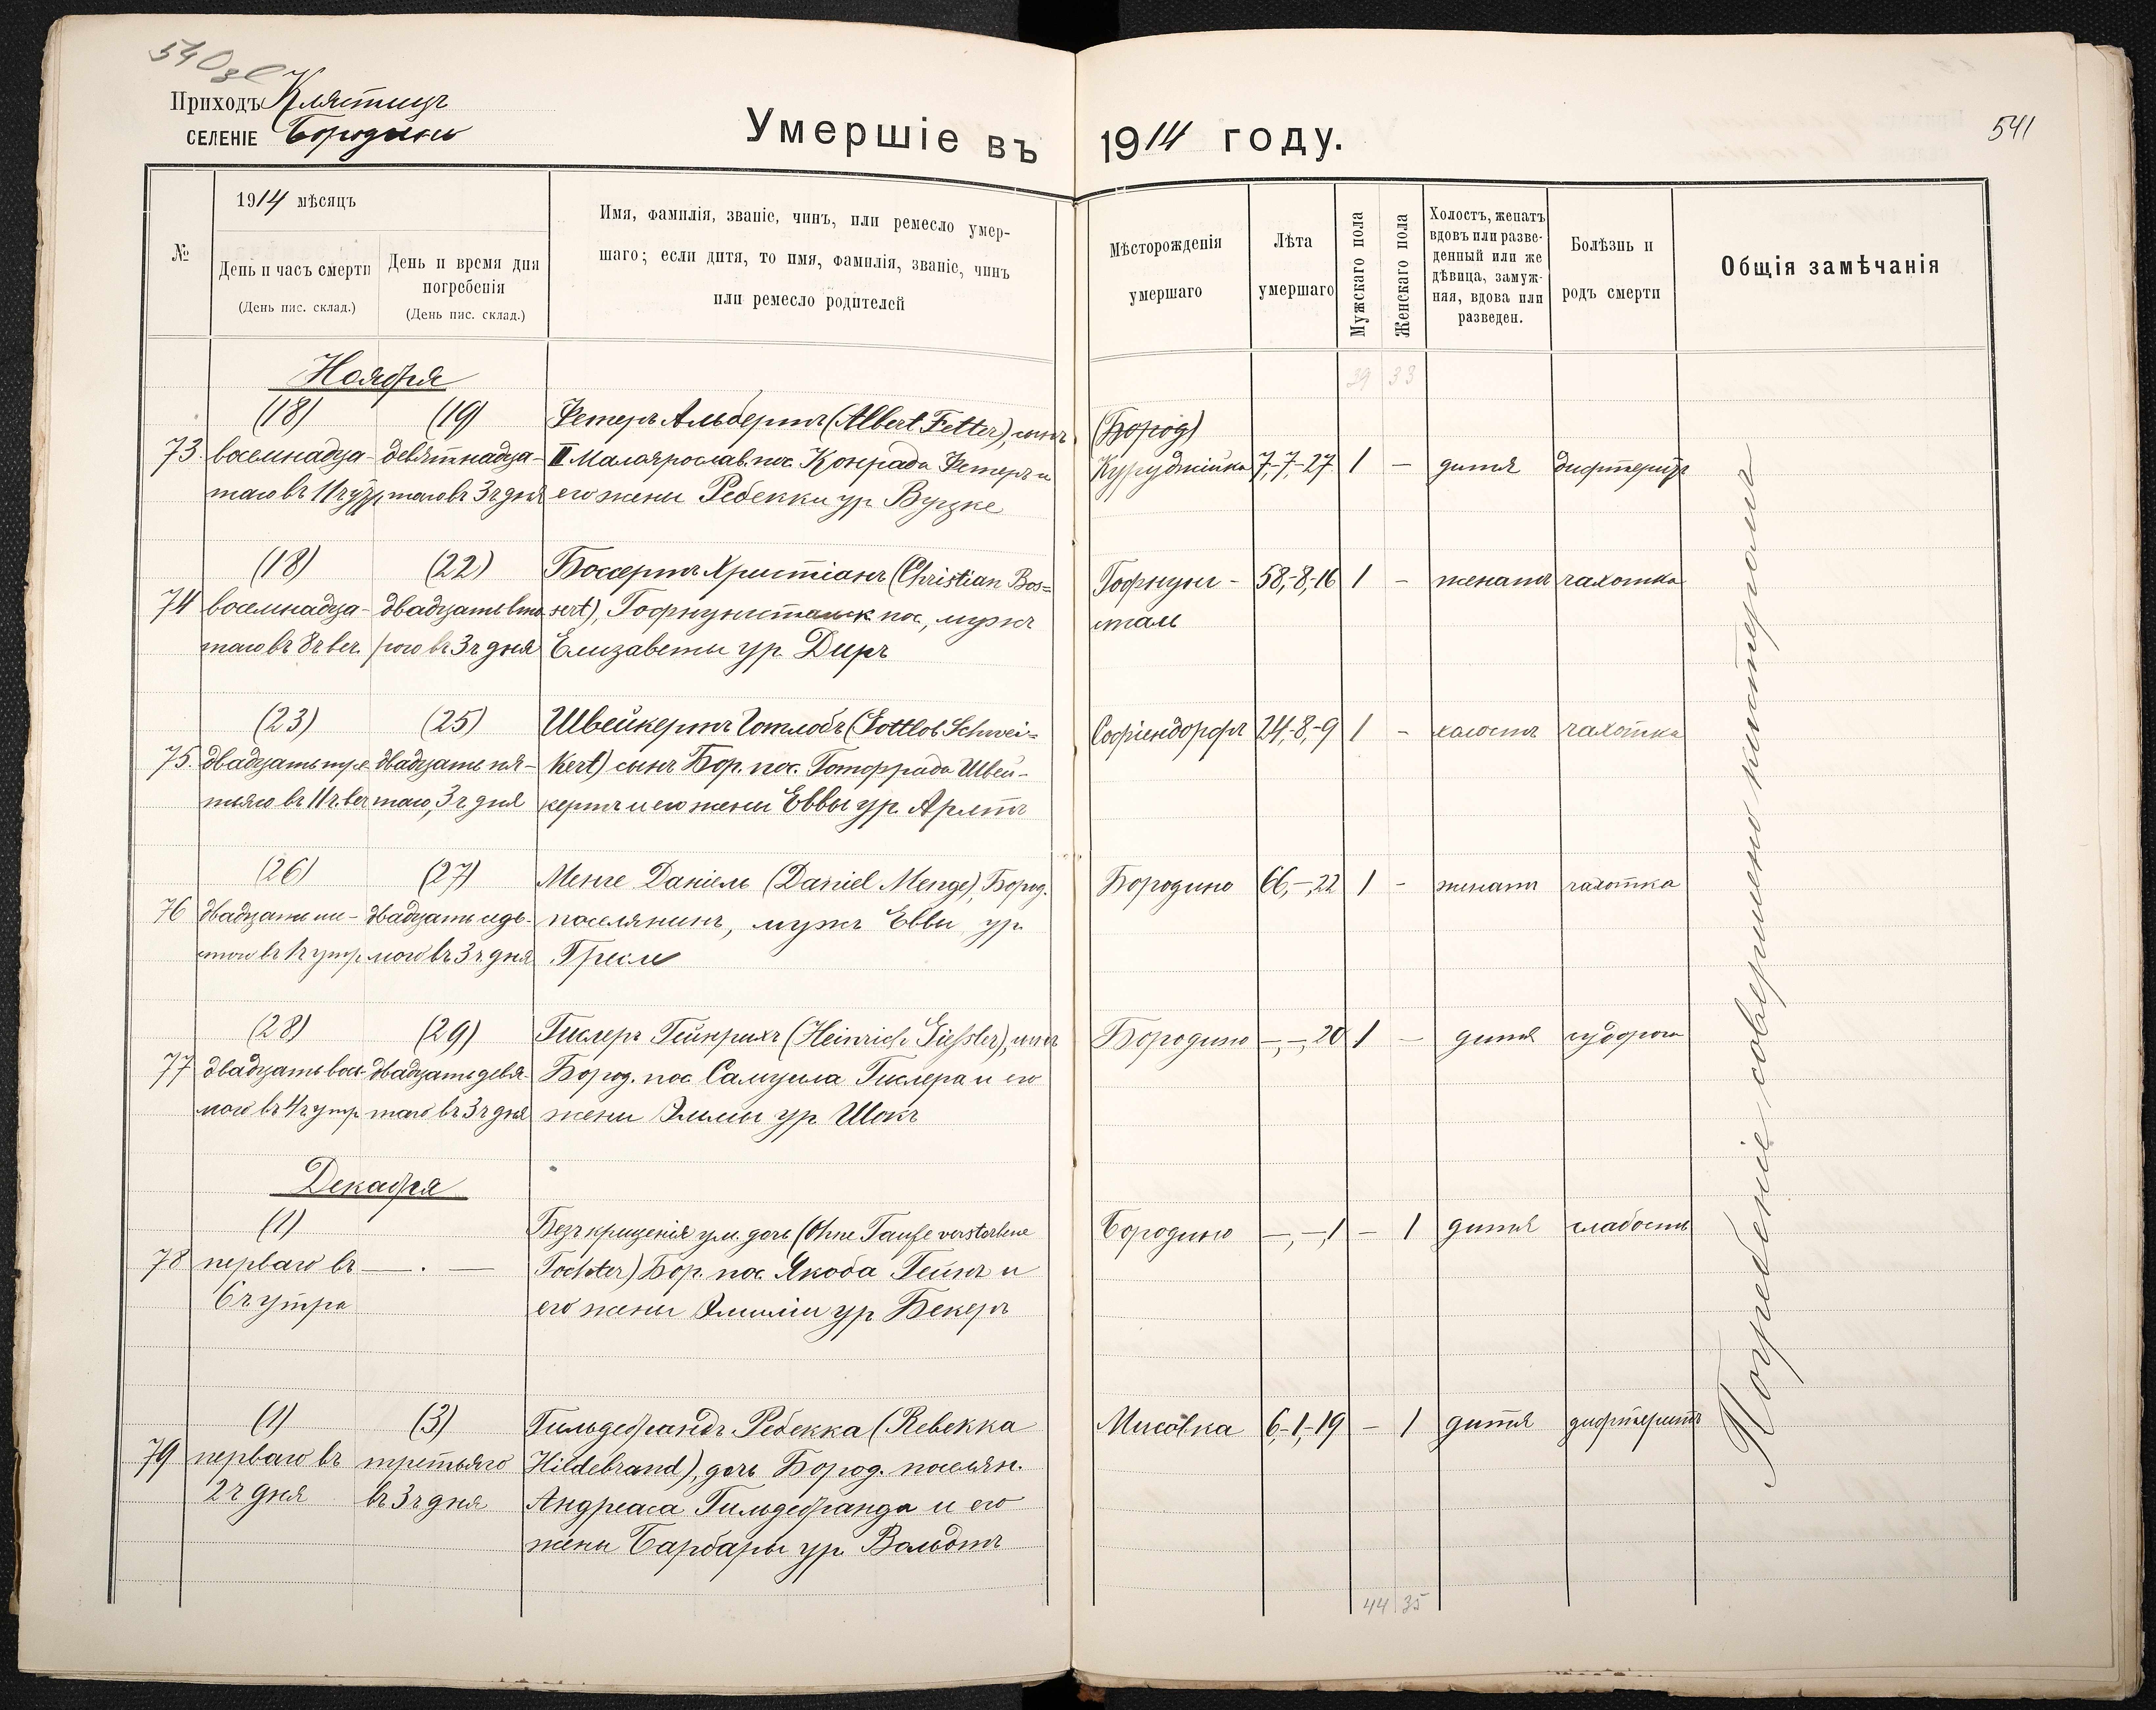 540 об
Приходъ Клястицъ
СЕЛЕНІЕ Бородино
Умершіе въ 1914 году.
541
№
1914 мѣсяцъ
День и часъ смерти
(День пис. склад.)
День и время дня
погребенія
(День пис. склад.)
Имя, фамилія, званіе, чинъ, или ремесло умер-
шаго; если дитя, то имя, фамилія, званіе, чинъ
или ремесло родителей
Мѣсторожденія
умершаго
Лѣта
умершаго
Мужскаго пола
Женскаго пола
Холостъ, женатъ
вдовъ или разве-
денный или же
дѣвица, замуж-
няя, вдова или
разведен.
Болѣзнь и
родъ смерти
Общія замѣчанія
Ноября
39 33
(18) (19) Фетеръ Альбертъ (Albert Fetter), сынъ (Бород)
73. восемнадца- девятнадца- II Малоярослав. пос. Конрада Фетеръ и Куруджійка 7,-7,-27. 1 — дитя дифтеритъ
таго въ 11 ч утр таго въ 3 ч дня его жены Ребекки ур. Вуцке
(18) (22) Боссертъ Христіанъ (Christian Bos= Гофнунг- 58,-8,-16 1 — женатъ чахотка
74 восемнадца- двадцать вто sert), Гофнунгстальск пос, мужъ сталь
таго въ 8 ч веч. рого въ 3 ч дня Елизаветы ур. Диръ
(23) (25) Швейкертъ Готлобъ (Gottlob Schwei= Софіендорфъ 24,-8,-9 1 — холостъ чахотка
75. двадцать тре двадцать пя- kert) сынъ Бор. пос. Готфрида Швей-
тьяго въ 11 ч. веч таго, 3 ч дня кертъ и его жены Еввы ур. Арлтъ
(26) (27) Менге Даніель (Daniel Menge), Бород. Бородино 66,-,22 1 — женатъ чахотка
76 двадцать ше- двадцать седь- поселянинъ, мужъ Еввы ур.
стого въ утр мого въ 3 ч дня
(28) (29) Гислеръ Гейнрихъ (Heinrich Giessler), сынъ Бородино —,—,20 1 — дитя судорога
77 двадцать вось- двадцать девя- Бород. пос Самуила Гислера и его
мого въ 4 ч утр таго въ 3 ч дня жены Эммы ур Шокъ
Декабря
(1) Безъ крещенія ум. дочь (Ohne Taufe verstorbene Бородино —,—,1 — 1 дитя слабость
78 перваго въ — . — Tochter) Бор. пос. Якоба Гейнъ и
6 ч утра его жены Эмиліи ур Бекеръ
(1) (3) Гильдебрандъ Ребекка (Rebekka Мисовка 6-1,-19 — 1 дитя дифтеритъ
79 перваго въ третьяго Hildebrand), дочь Бород. поселян.
2 ч дня въ 3 ч дня Андреаса Гильдебранда и его
жены Барбары ур. Вальдтъ
44 35
Погребеніе совершено кистеромъ